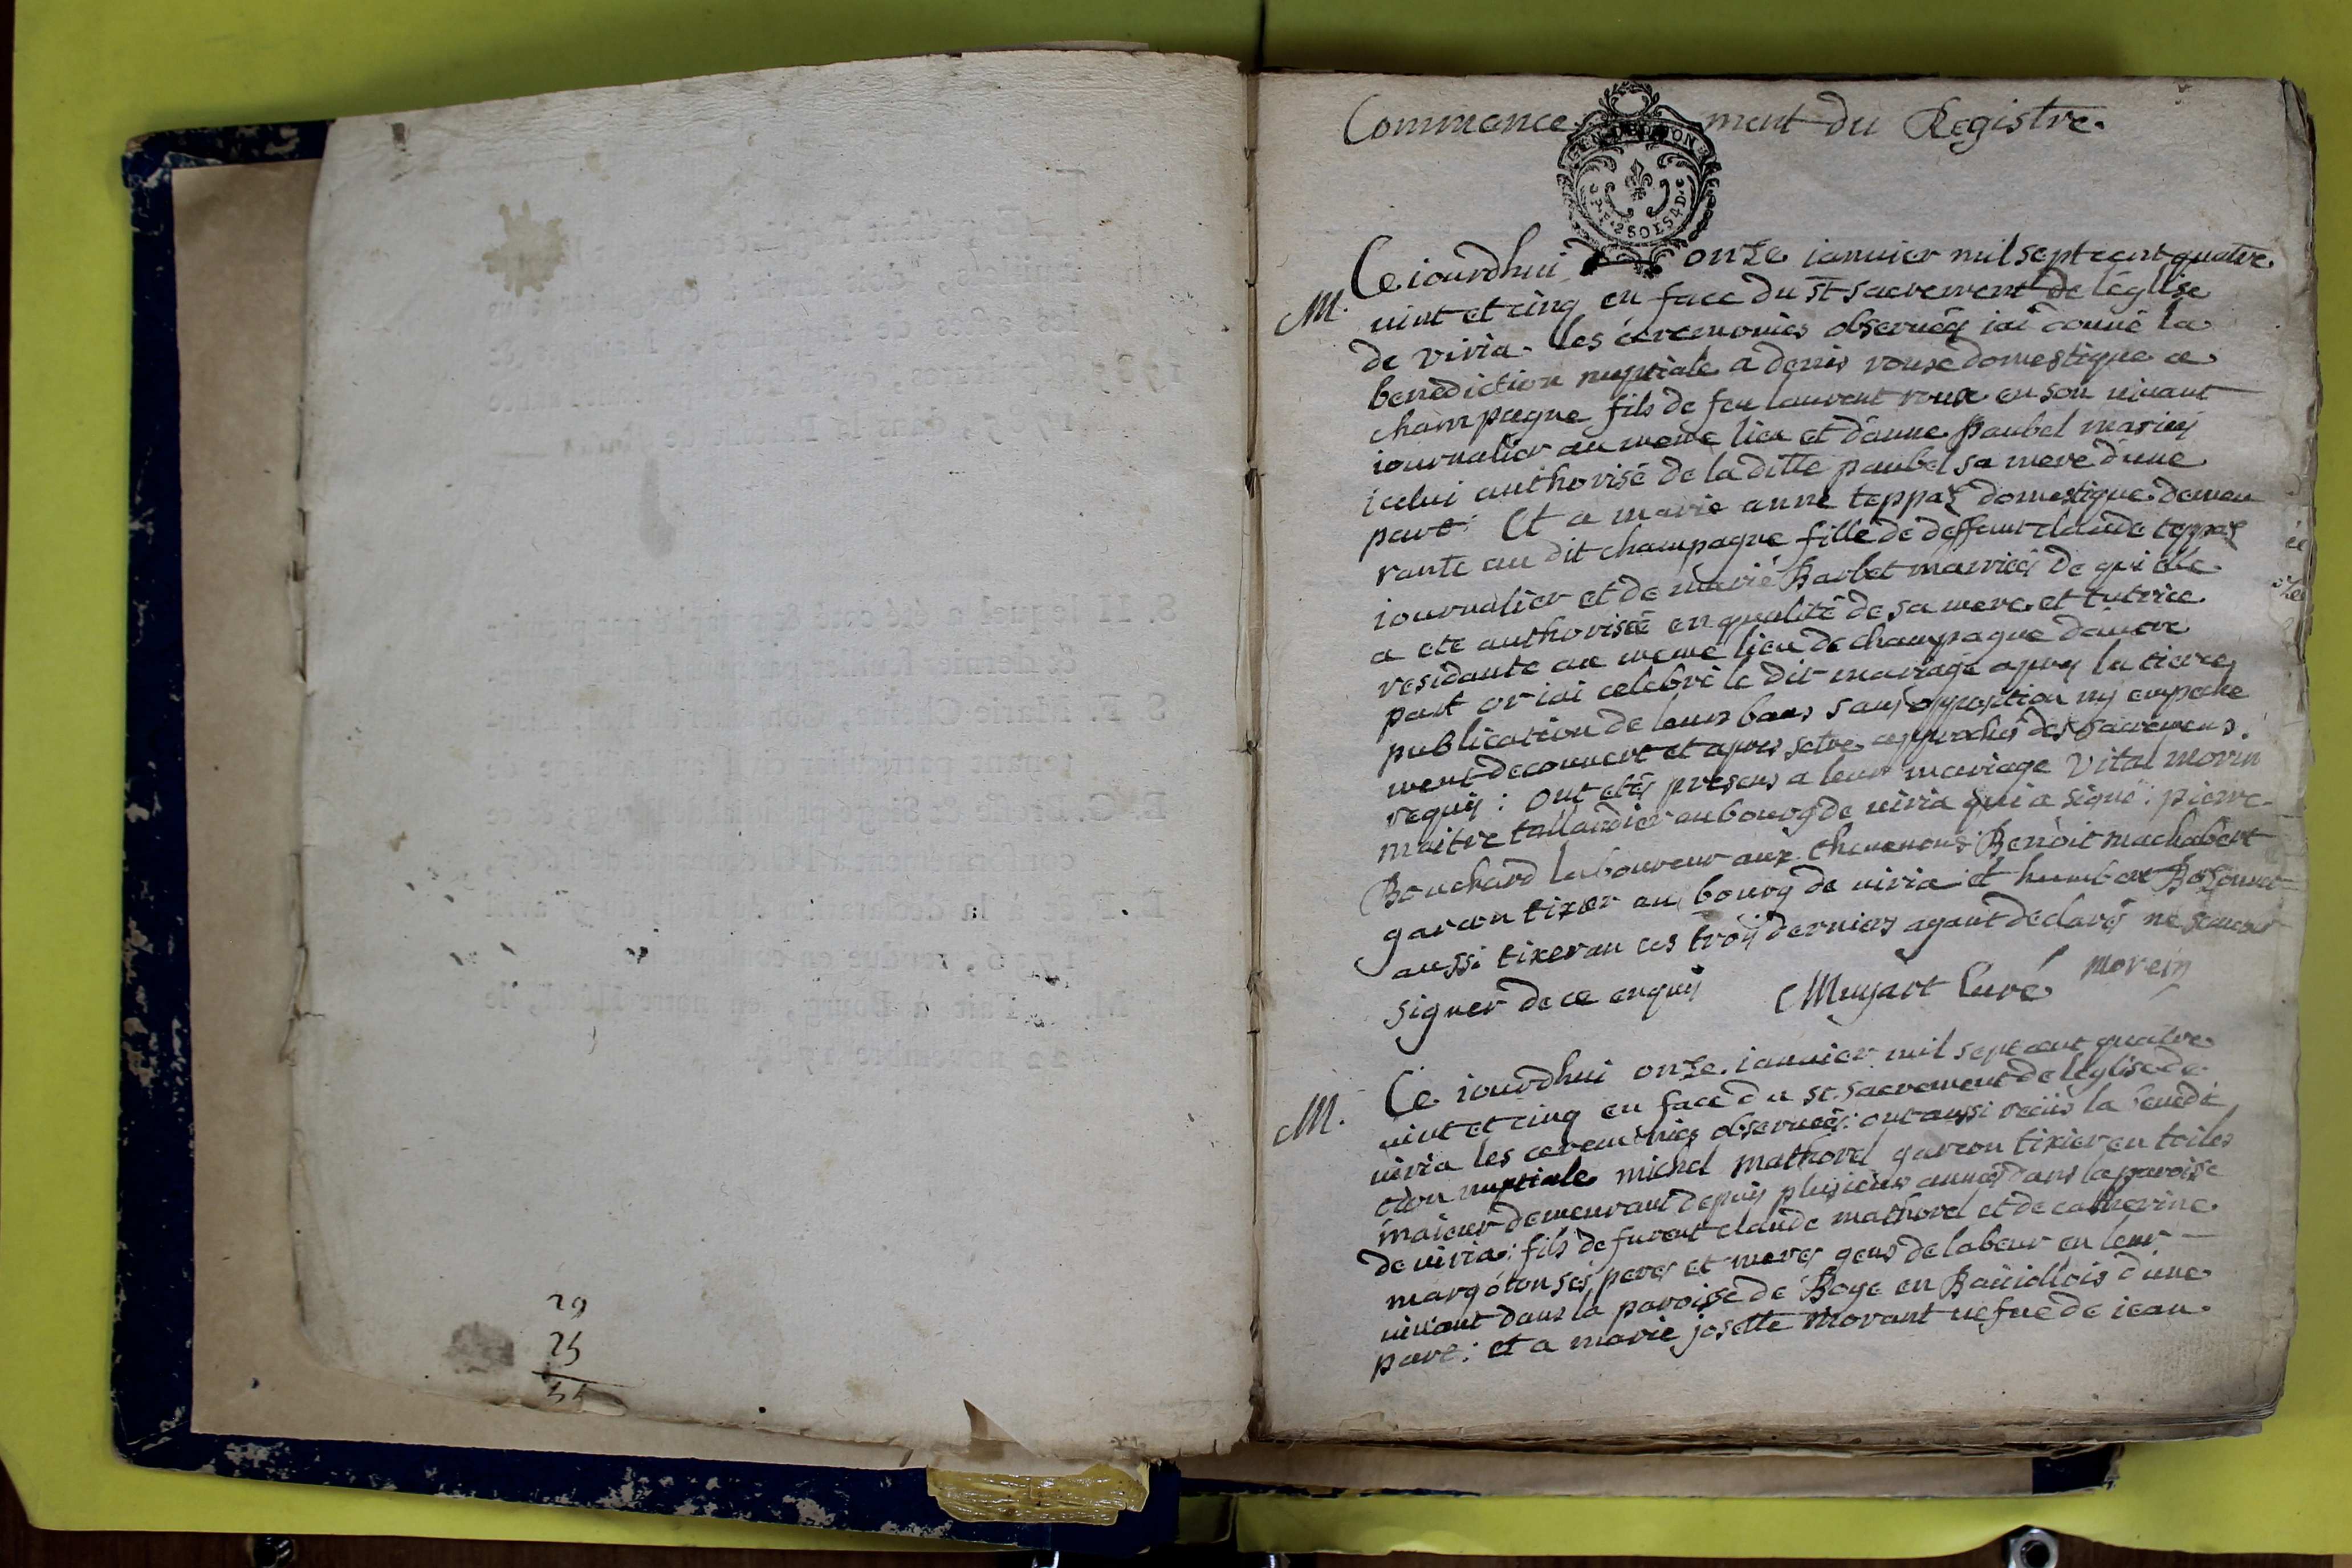 29
25
54
Commencement du Registre.
GEN. DE DIJON
2 SOLS 4 D.
Ce iourdhui onze ianuier mil sept cent quatre
M.
uint et cinq en face du st sacrement de leglise
de viria. les ceremonies obseruéés iai donné la
benediction nuptiale a denis roux domestique a
champagne fils de feu laurent roux en son uiuant
iournalier au meme lieu et danne paubel mariés
icelui authorisé de la ditte paubel sa mere dune
part: Et a marie anne teppaz domestique demeu
rante au dit champagne fille de deffunt claude teppaz
iournalier et de marie Barbet mariéés de qui elle
a ete authorisée en qualité de sa mere et tutrice
residante au meme lieu de champagne dautre
part or iai celebré le dit mariage apres la tierce
publication de leurs bans sans opposition ny empeche
ment decouuert et apres setre approchés des sacremens
requis: ont etés presens a leur mariage Vital morin
maitre tallandier au bourg de uiria qui a signé: pierre
Bouchard laboureur aux cheuenons Benoit machabert
garcon tixier au bourg de uiria et humbert Bozonnet
aussi tixeran ces trois derniers ayant declarés ne scauoir
signer de ce enquis Muyart Curé morein
Ce iourdhui onze ianuier mil sept cent quatre
M.
uint et cinq en face du st. sacrement de leglise de
uiria les ceremonies obseruéés: ont aussi recüs la benedi
ction nuptiale michel mathovel garcon tixier en toiles
maieur demeurant depuis plusieurs annéés dans la paroisse
de uiria: fils de furent claude mathovel et de catherine
margóton ses peres et meres gens de labeur en leur
uiuant dans la paroisse de Boye en Baüiollois dune
part: et a marie josette Morant uefue de iean